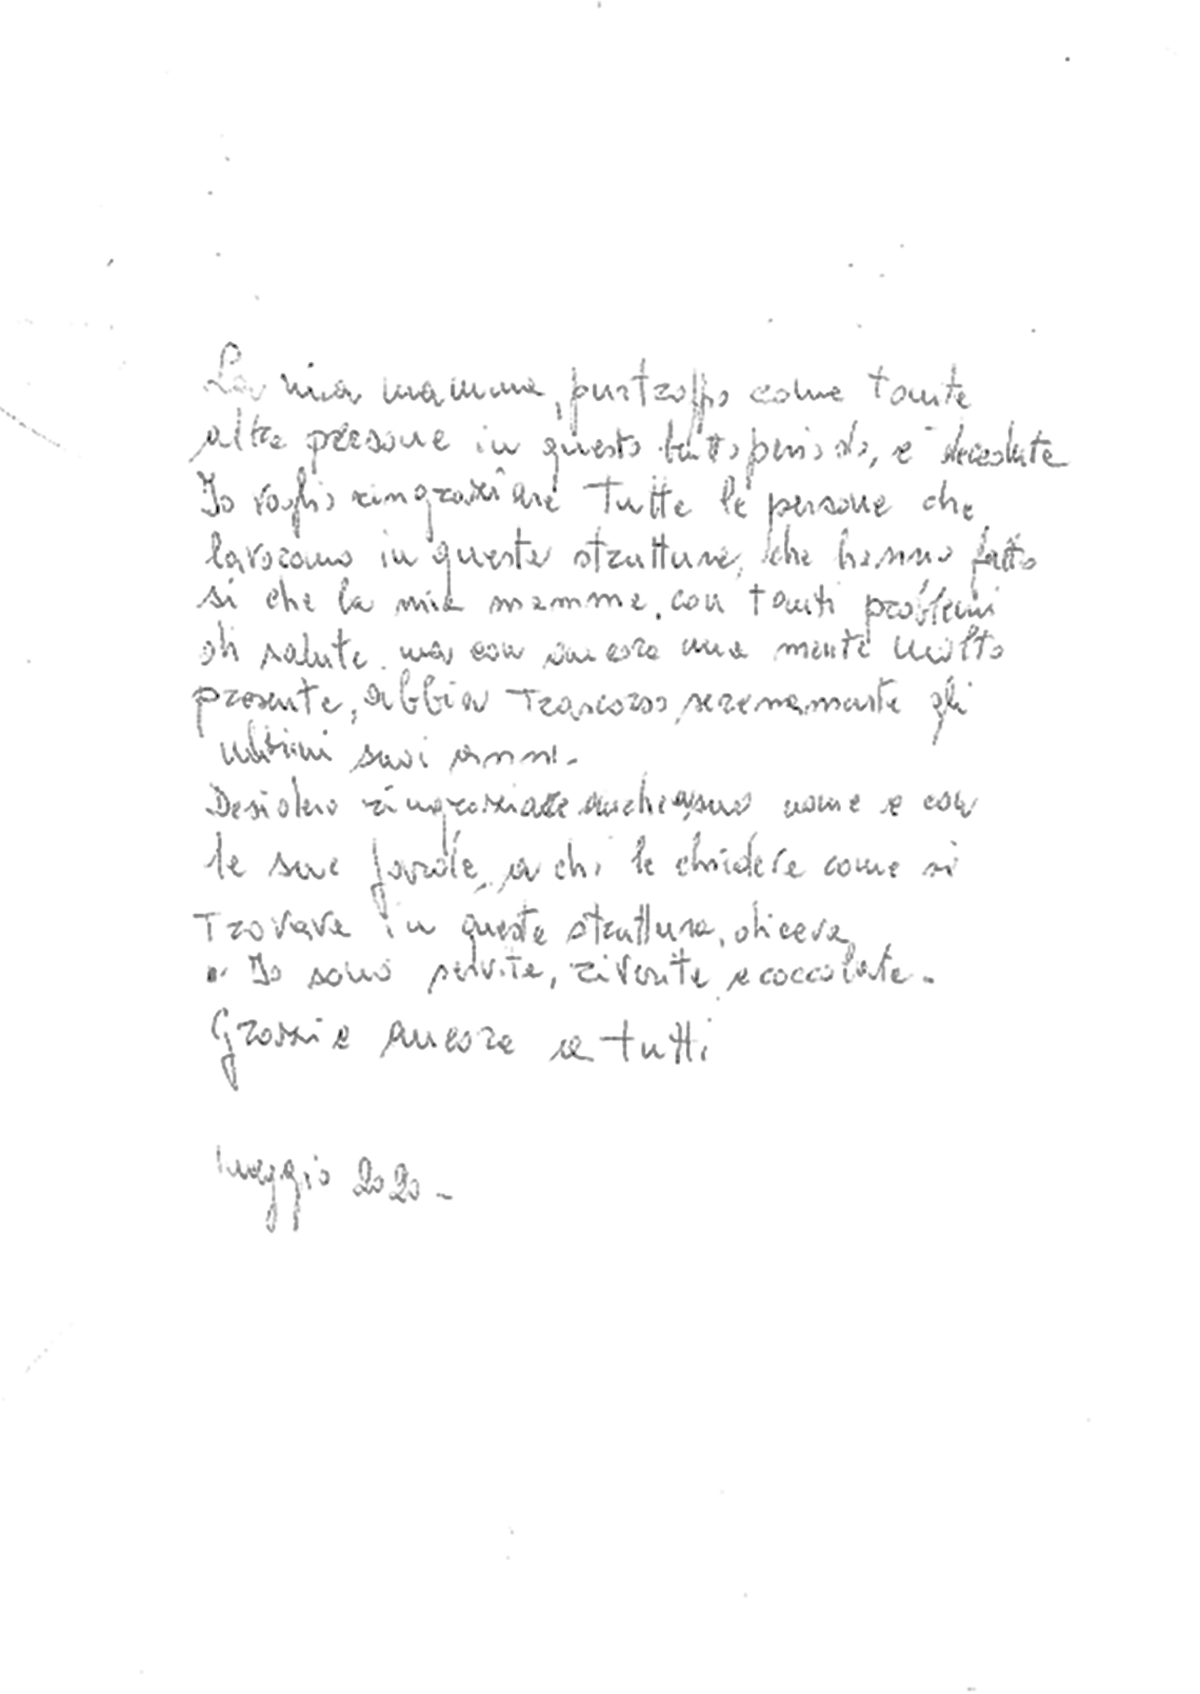 La mia mamma, purtroppo come tante
altre persone in questo brutto periodo, è deceduta
Io voglio ringraziare tutte le persone che
lavorano in questa struttura, che hanno fatto
si che la mia mamma, con tanti problemi
di salute ma con ancora una mente molto
presente, abbia trascorso serenamente gli
ultimi suoi anni.
Desidero ringraziare anche a suo nome e con
le sue parole, a chi le chiedeva come si
trovava in questa struttura, diceva
Io sono servita, riverita e coccolata.
Grazie ancora a tutti
Maggio 2020 -